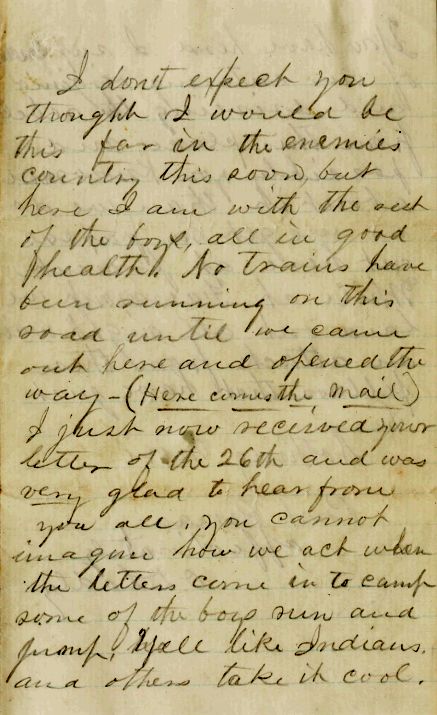 I dont expect you
thought I would be
this far in the enemies
country this soon, but
here I am with the rest
of the boys, all in good
health. No trains have
been running on this
road until we came
out here and opened the
way - (Here comes the Mail)
I just now received your
letter of the 26th and was
very glad to hear from
you all, you cannot
imagine how we act when
the letters come in to camp
some of the boys run and
jump, Yell like Indians,
and others take it cool.